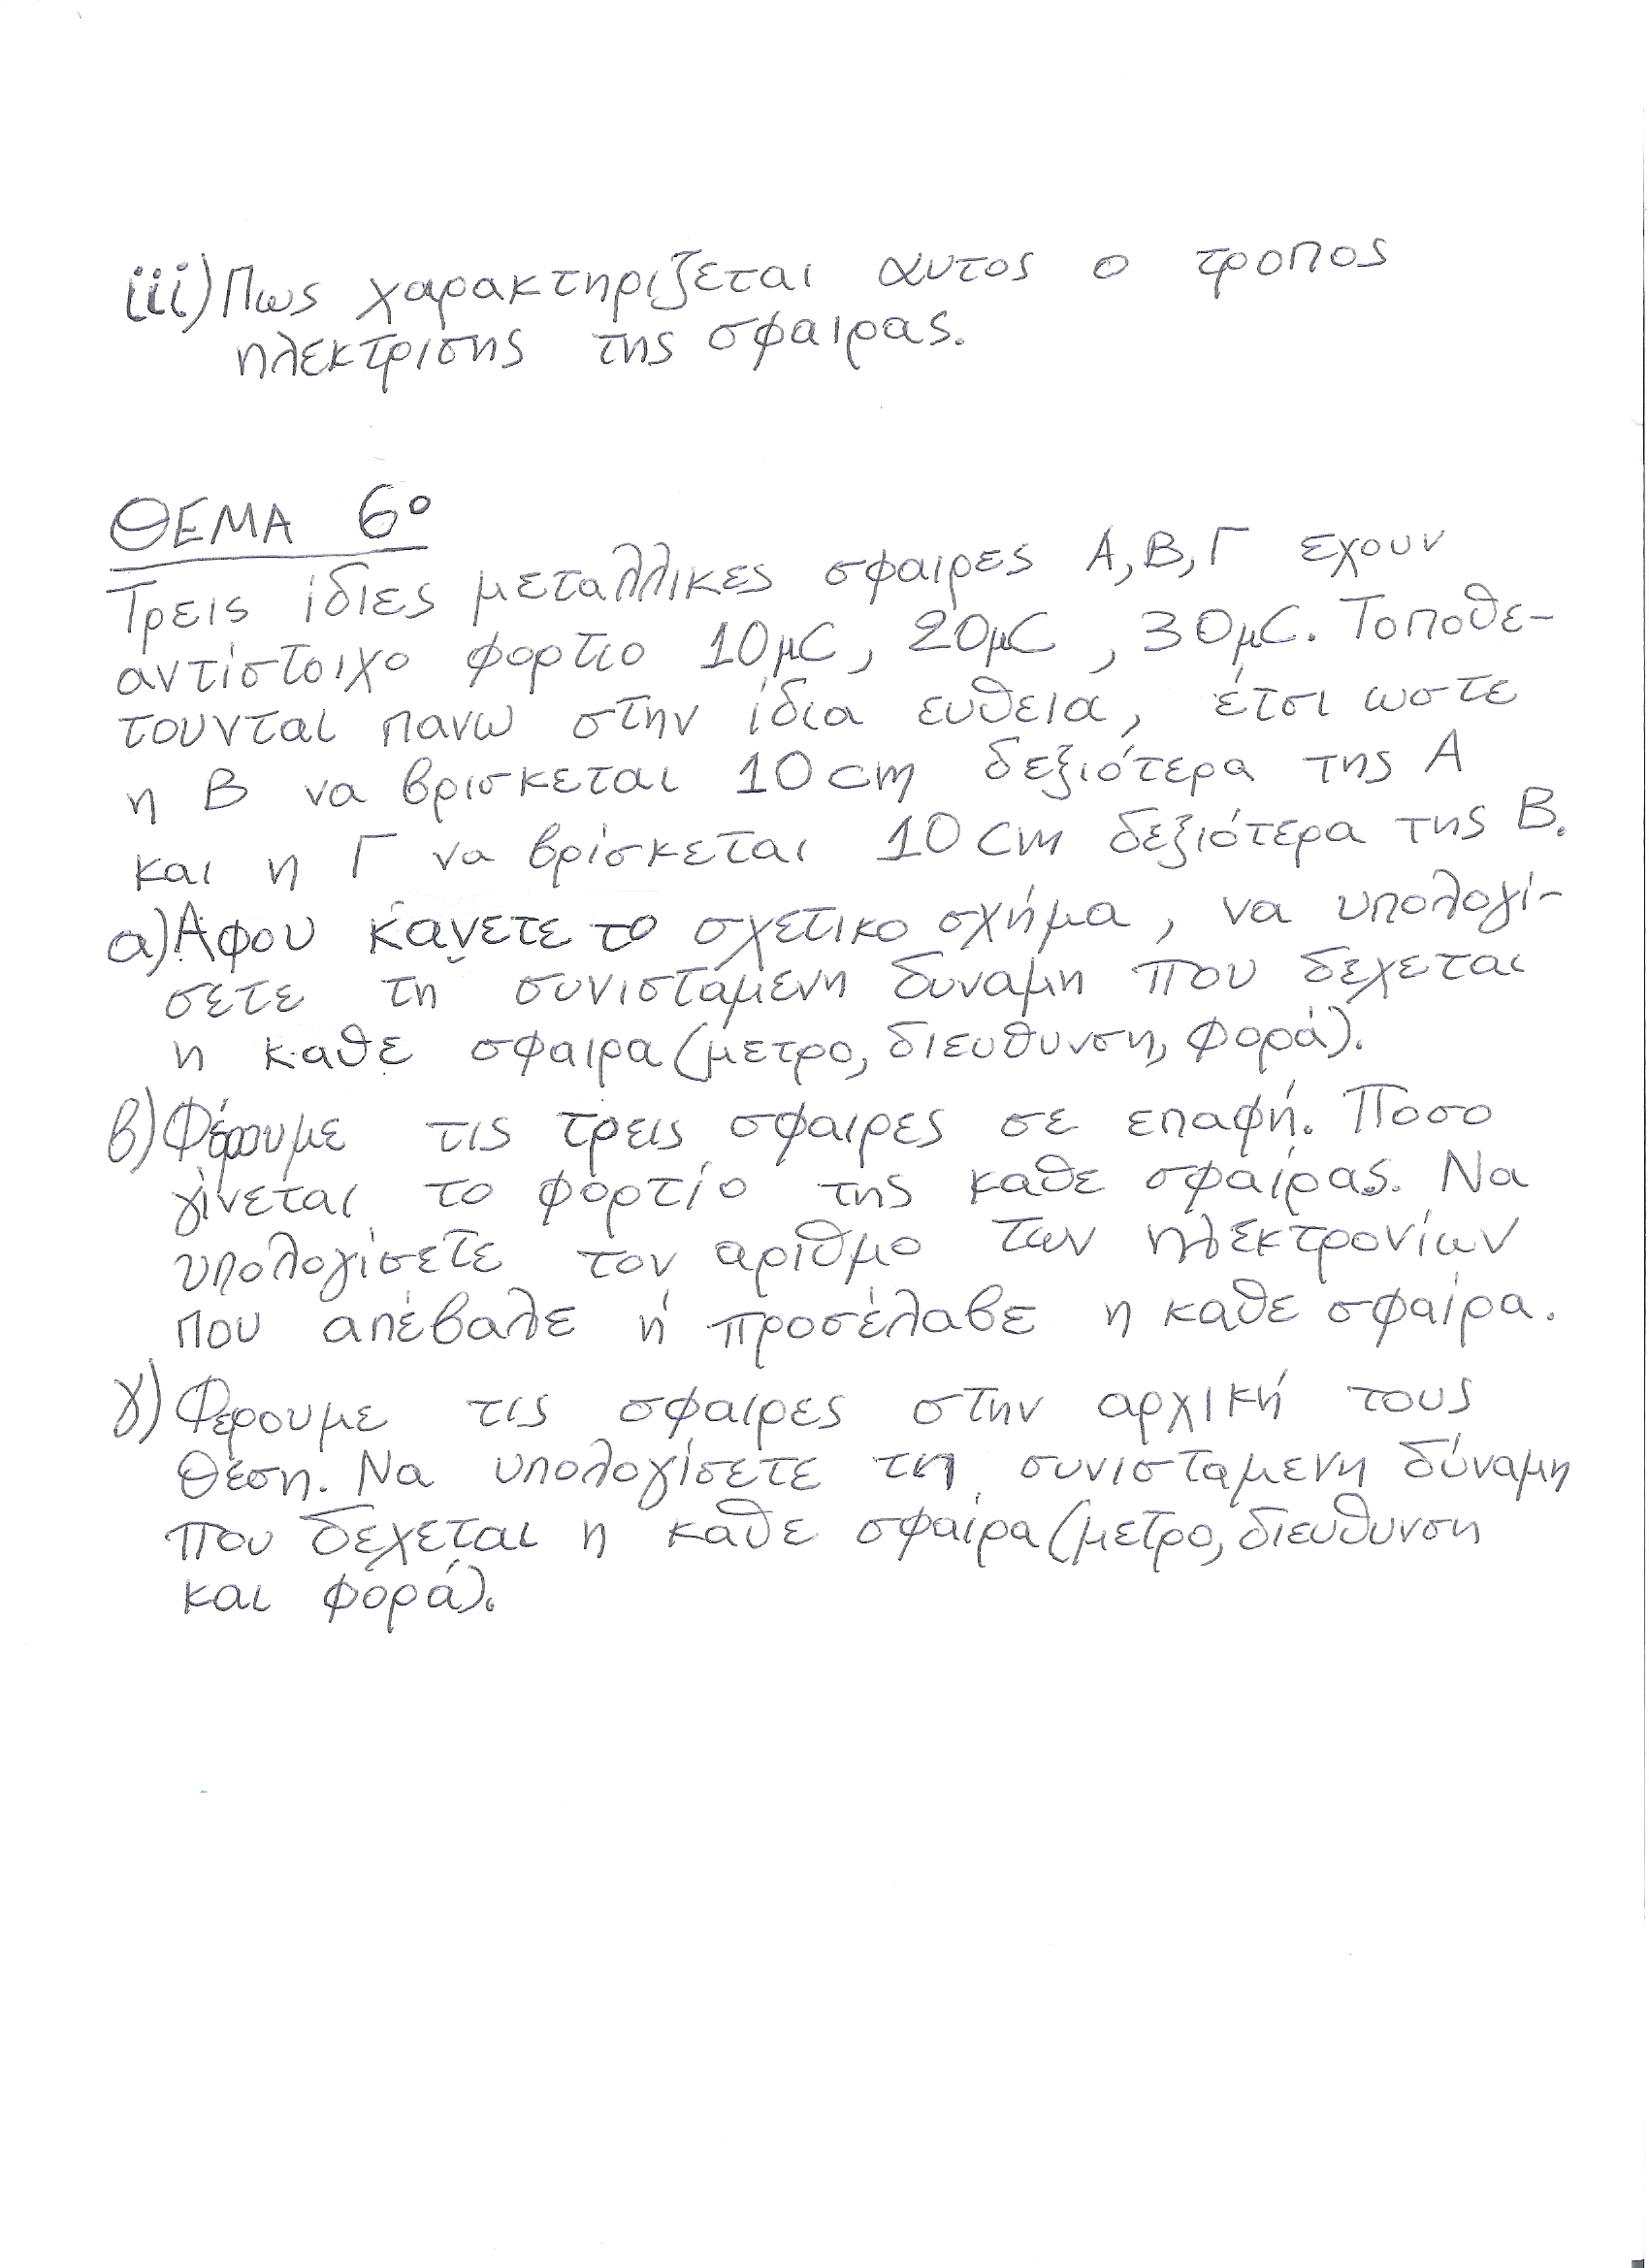 iii) Πως χαρακτηριζεται αυτος ο τροπος
ηλεκτρισης της σφαιρας.
ΘΕΜΑ 6º
Τρεις ίδιες μεταλλικες σφαιρες Α, Β, Γ εχουν
αντίστοιχο φορτιο 10μC, 20μC, 30μC. Τοποθε-
τουνται πανω στην ίδια ευθεια, έτσι ωστε
η Β να βρισκεται 10cm δεξιότερα της Α
και η Γ να βρίσκεται 10cm δεξιότερα της Β.
α) Αφου κάνετε το σχετικο σχήμα, να υπολογί-
σετε τη συνισταμενη δυναμη που δεχεται
η καθε σφαιρα (μετρο, διευθυνση, φορά).
β) Φέρουμε τις τρεις σφαιρες σε επαφή. Ποσο
γίνεται το φορτίο της καθε σφαίρας. Να
υπολογίσετε τον αριθμο των ηλεκτρονίων
που απέβαλε ή προσέλαβε η καθε σφαίρα.
γ) Φερουμε τις σφαιρες στην αρχική τους
θέση. Να υπολογίσετε τη συνισταμενη δύναμη
που δεχεται η καθε σφαίρα (μετρο, διευθυνση
και φορά).